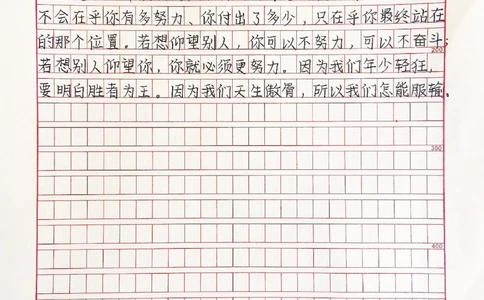 不会在乎你有多努力、你付出了多少，只在乎你最终站在
的那个位置。若想仰望别人，你可以不努力，可以不奋斗；
200
若想别人仰望你，你就必须更努力。因为我们年少轻狂，
要明白胜者为王。因为我们天生傲骨，所以我们怎能服输。
300
400